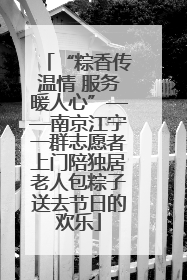 「“粽香传
温情 服务
暖人心”—
—南京江宁
一群志愿者
上门陪独居
老人包粽子
送去节日的
欢乐」